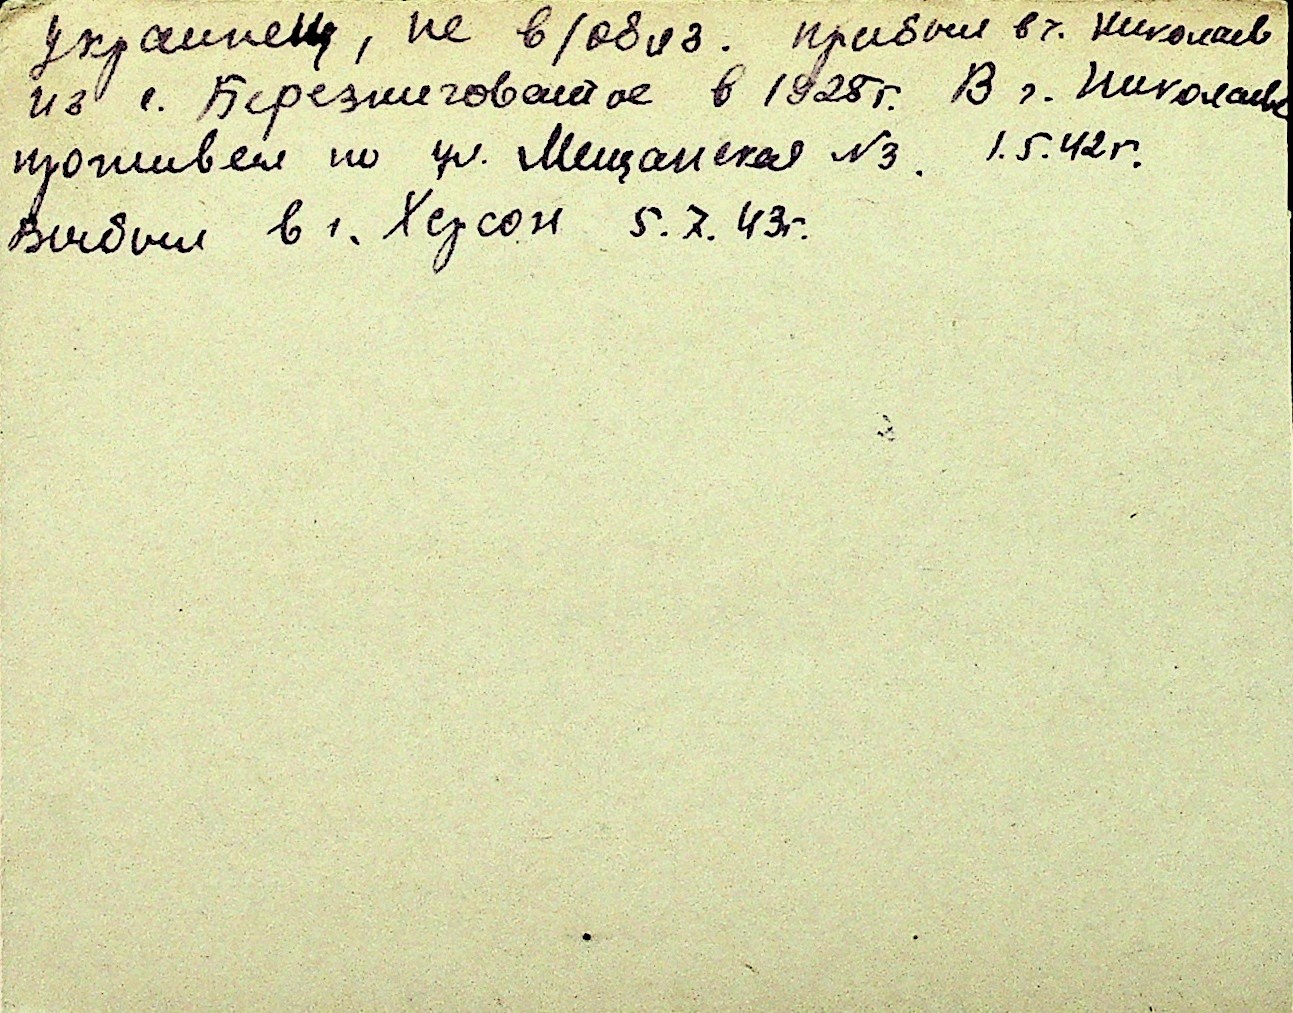 украинец, не в/обяз. прибыл в г. Николаев
из с. Березниговатое в 1928г. В г. Николаеве
проживал по ул. Мещанская №3. 1.5.42г.
Выбыл в г. Херсон 5.7.43г.